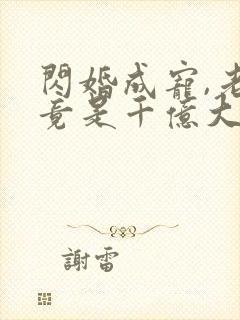 閃婚成寵,老
竟是千億大
謝雷